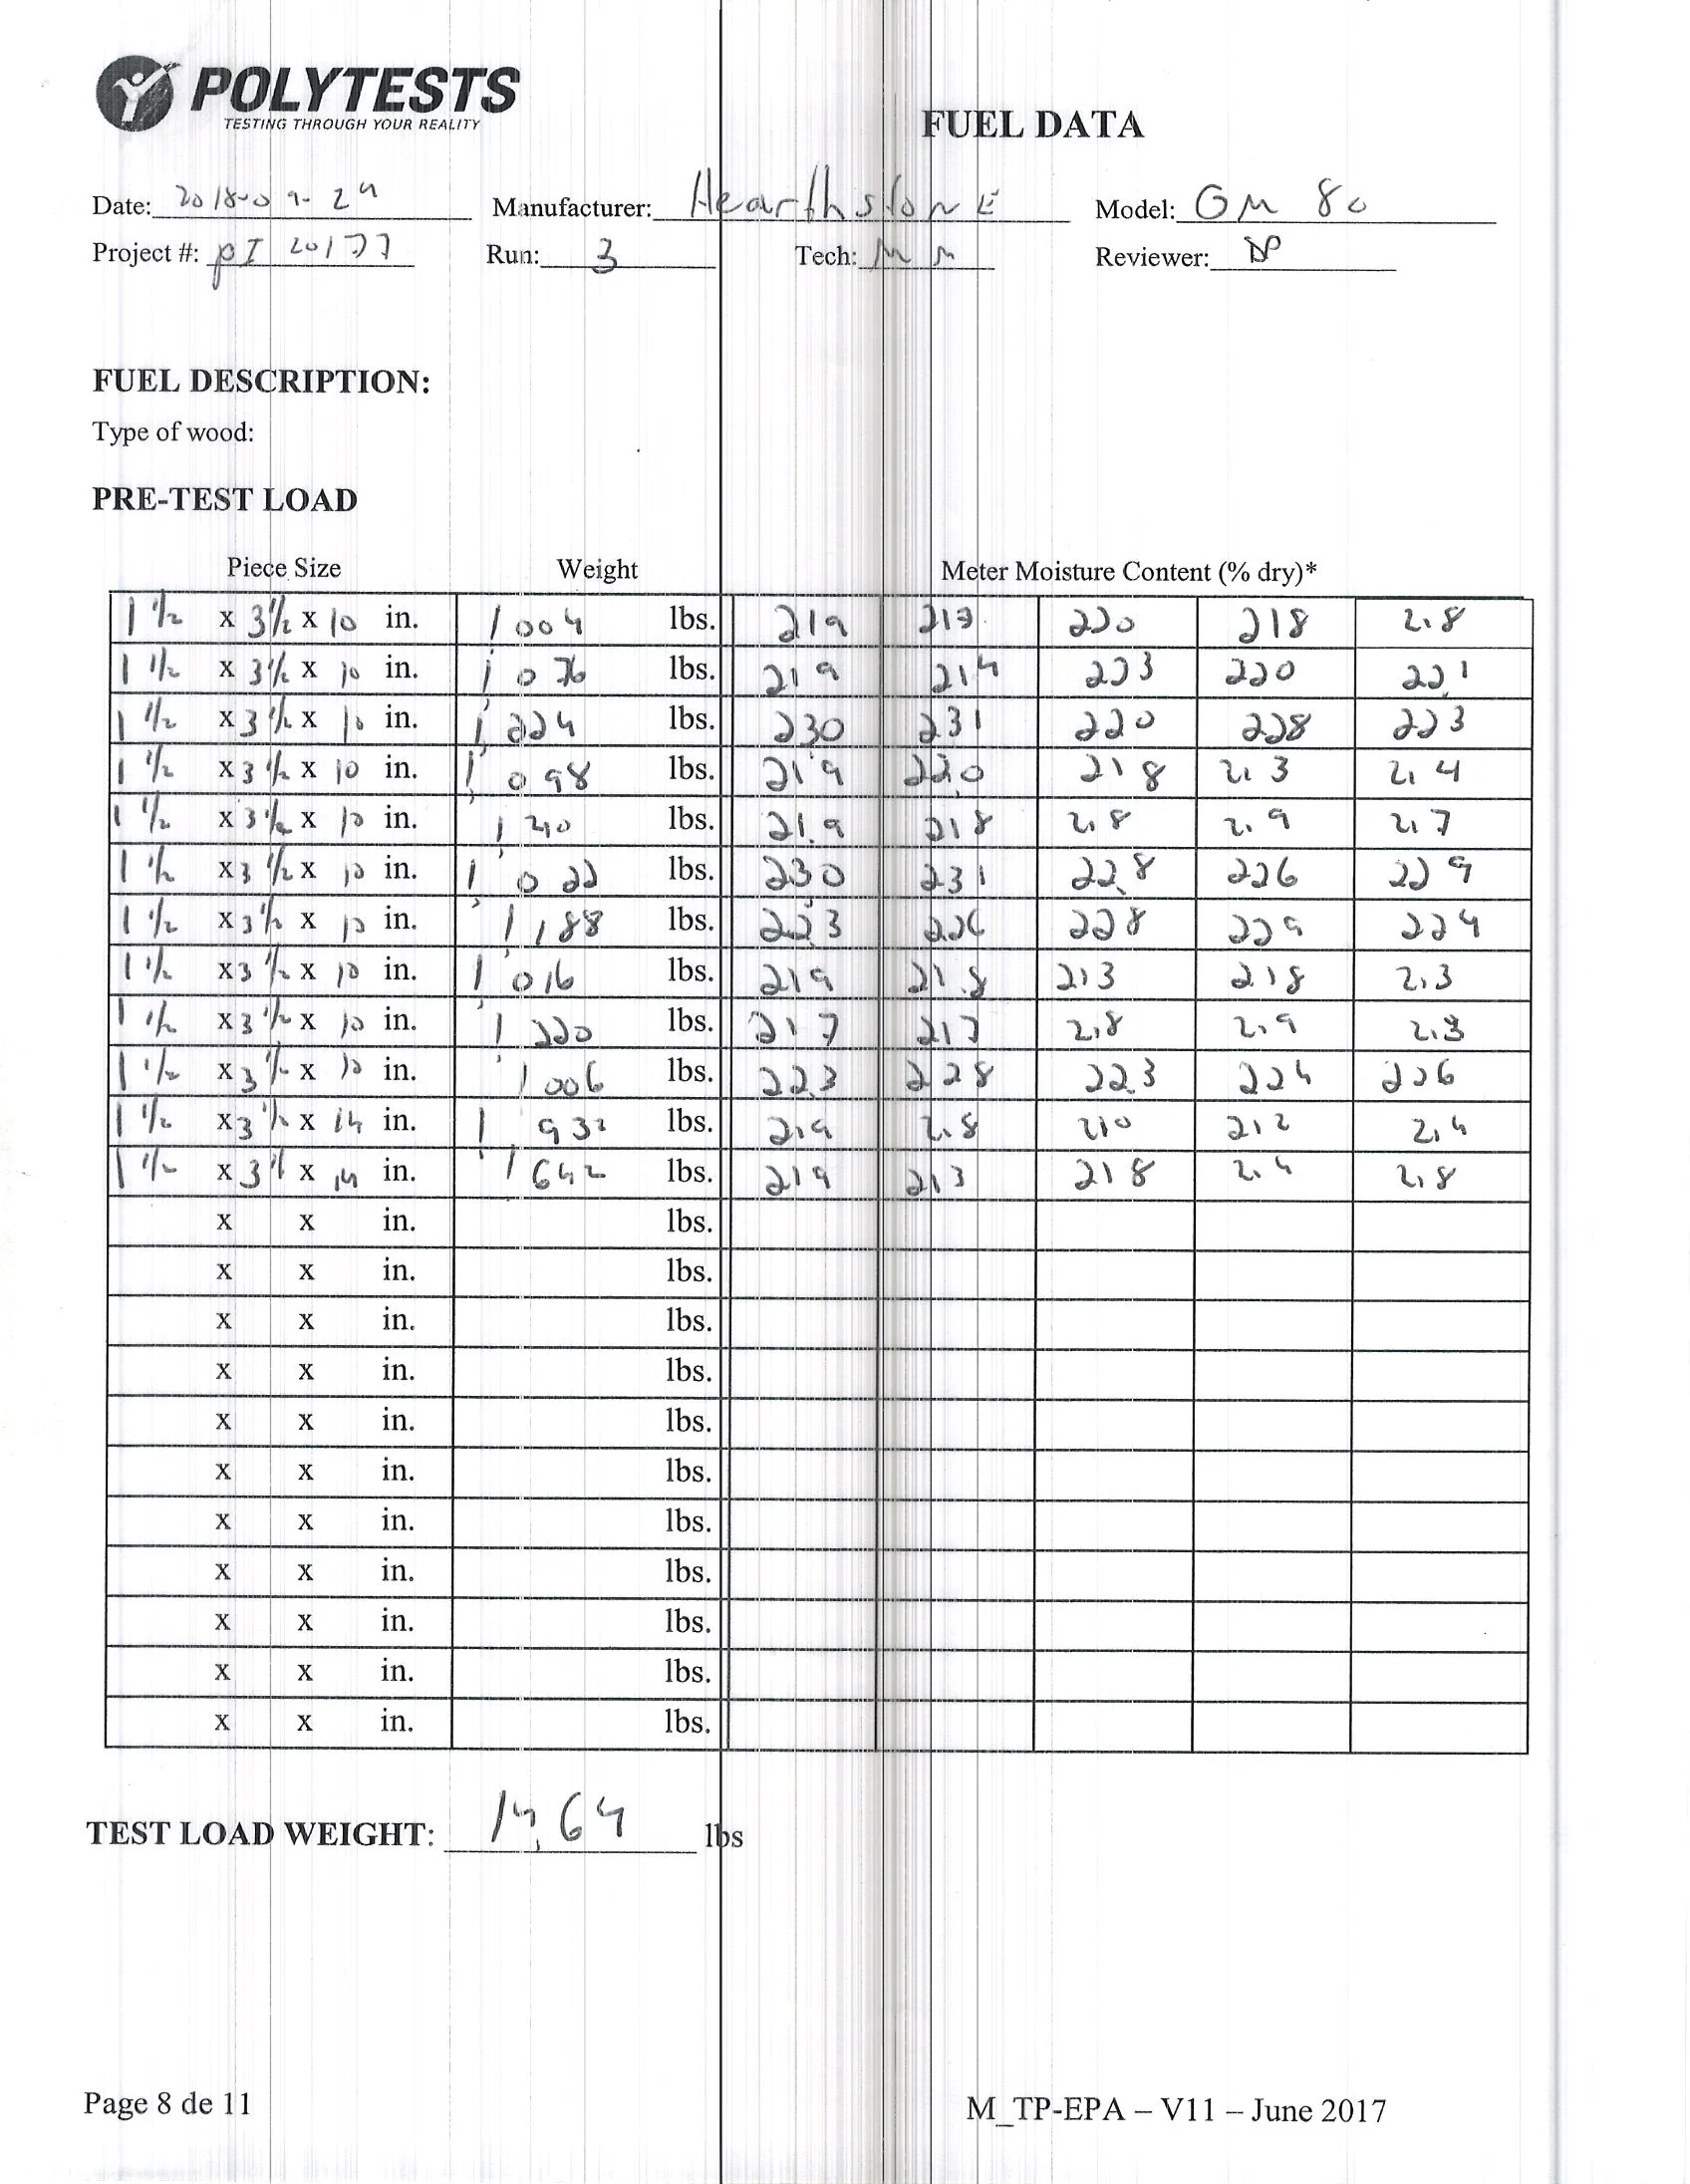 POLYTESTS
TESTING THROUGH YOUR REALITY
FUEL DATA
Date: 2018-09-24 Manufacturer: HearthstonE Model: GM 80
Project #: pI 20177 Run: 3 Tech: MM Reviewer: DP
FUEL DESCRIPTION:
Type of wood:
PRE-TEST LOAD
Piece Size Weight Meter Moisture Content (% dry)*
1 1/2 x 3 1/2 x 10 in. 1,004 lbs. 219 213 220 218 218
1 1/2 x 3 1/2 x 10 in. 1,076 lbs. 219 214 223 220 221
1 1/2 x 3 1/2 x 10 in. 1,224 lbs. 230 231 220 228 223
1 1/2 x 3 1/2 x 10 in. 1,098 lbs. 219 220 218 213 214
1 1/2 x 3 1/2 x 10 in. 1,210 lbs. 21.9 218 218 219 217
1 1/2 x 3 1/2 x 10 in. 1,022 lbs. 230 231 22.8 226 229
1 1/2 x 3 1/2 x 10 in. 1,188 lbs. 22.3 226 228 229 224
1 1/2 x 3 1/2 x 10 in. 1,016 lbs. 219 21.8 213 218 213
1 1/2 x 3 1/2 x 10 in. 1,220 lbs. 217 217 218 219 213
1 1/2 x 3 1/2 x 10 in. 1,006 lbs. 223 228 22.3 224 226
1 1/2 x 3 1/2 x 14 in. 1,932 lbs. 219 218 210 212 214
1 1/2 x 3 1/ x 14 in. 1,642 lbs. 219 213 218 214 218
x x in. lbs.
x x in. lbs.
x x in. lbs.
x x in. lbs.
x x in. lbs.
x x in. lbs.
x x in. lbs.
x x in. lbs.
x x in. lbs.
x x in. lbs.
x x in. lbs.
TEST LOAD WEIGHT: 14,64 lbs
Page 8 de 11 M_TP-EPA – V11 – June 2017